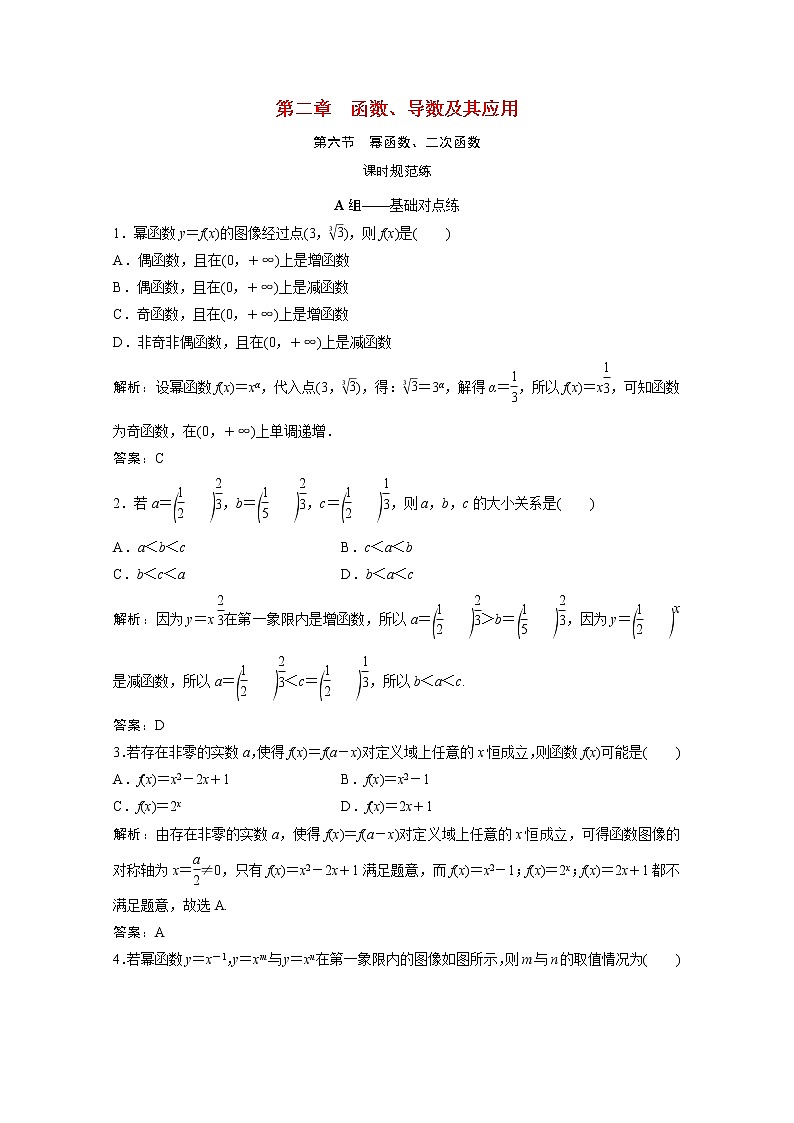 第二章 函数、导数及其应用
第六节 幂函数、二次函数
课时规范练
A 组——基础对点练
1．幂函数 y＝f(x)的图像经过点(3，∛3)，则 f(x)是( )
A．偶函数，且在(0，＋∞)上是增函数
B．偶函数，且在(0，＋∞)上是减函数
C．奇函数，且在(0，＋∞)上是增函数
D．非奇非偶函数，且在(0，＋∞)上是减函数
解析：设幂函数 f(x)＝x^α，代入点(3，∛3)，得：∛3＝3^α，解得 α＝1/3，所以 f(x)＝x^(1/3)，可知函数
为奇函数，在(0，＋∞)上单调递增．
答案：C
2．若 a＝(1/2)^(2/3)，b＝(1/5)^(2/3)，c＝(1/2)^(1/3)，则 a，b，c 的大小关系是( )
A．a＜b＜c B．c＜a＜b
C．b＜c＜a D．b＜a＜c
解析：因为 y＝x^(2/3)在第一象限内是增函数，所以 a＝(1/2)^(2/3)＞b＝(1/5)^(2/3)，因为 y＝(1/2)^x
是减函数，所以 a＝(1/2)^(2/3)＜c＝(1/2)^(1/3)，所以 b＜a＜c.
答案：D
3．若存在非零的实数 a，使得 f(x)＝f(a－x)对定义域上任意的 x 恒成立，则函数 f(x)可能是( )
A．f(x)＝x²－2x＋1 B．f(x)＝x²－1
C．f(x)＝2^x D．f(x)＝2x＋1
解析：由存在非零的实数 a，使得 f(x)＝f(a－x)对定义域上任意的 x 恒成立，可得函数图像的
对称轴为 x＝a/2≠0，只有 f(x)＝x²－2x＋1 满足题意，而 f(x)＝x²－1；f(x)＝2^x；f(x)＝2x＋1 都不
满足题意，故选 A.
答案：A
4．若幂函数 y＝x⁻¹，y＝x^m 与 y＝x^n 在第一象限内的图像如图所示，则 m 与 n 的取值情况为( )